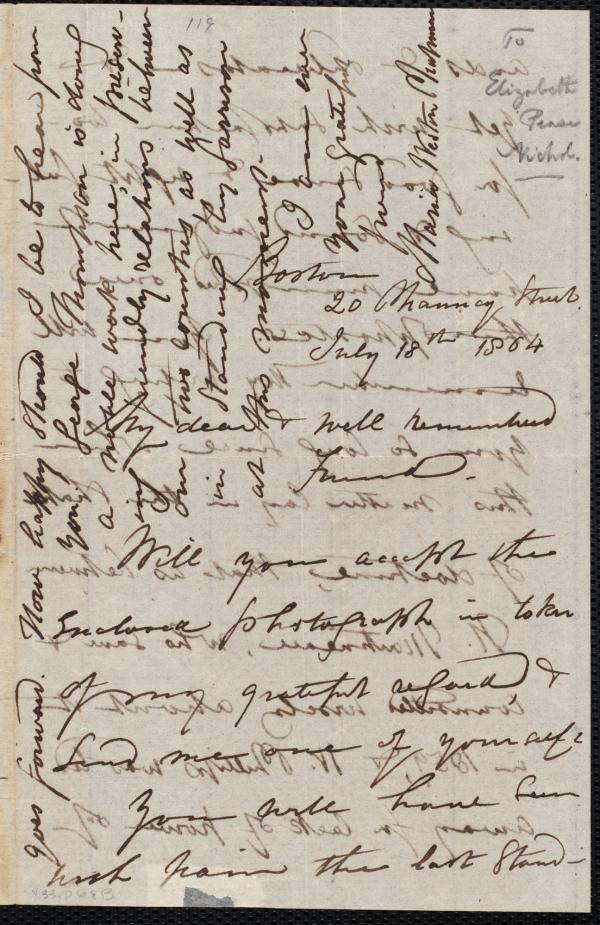 119
To
Elizabeth
Pease
Nichol.
Boston
20 Chauncy Street.
July 18th 1864
My dear & well remembered
Friend.
Will you accept the
enclosed photograph in token
of my grateful regard, &
send me one of yourself?
You will have seen
with pain the last Stand-
goes forward. How happy should I be to hear from
you. George Thompson is doing
a noble work here, in preserv-
ing friendly relations between
our two countries, as well as
in standing by Garrison
at this moment.
I am ever
your grateful
friend
Maria Weston Chapman